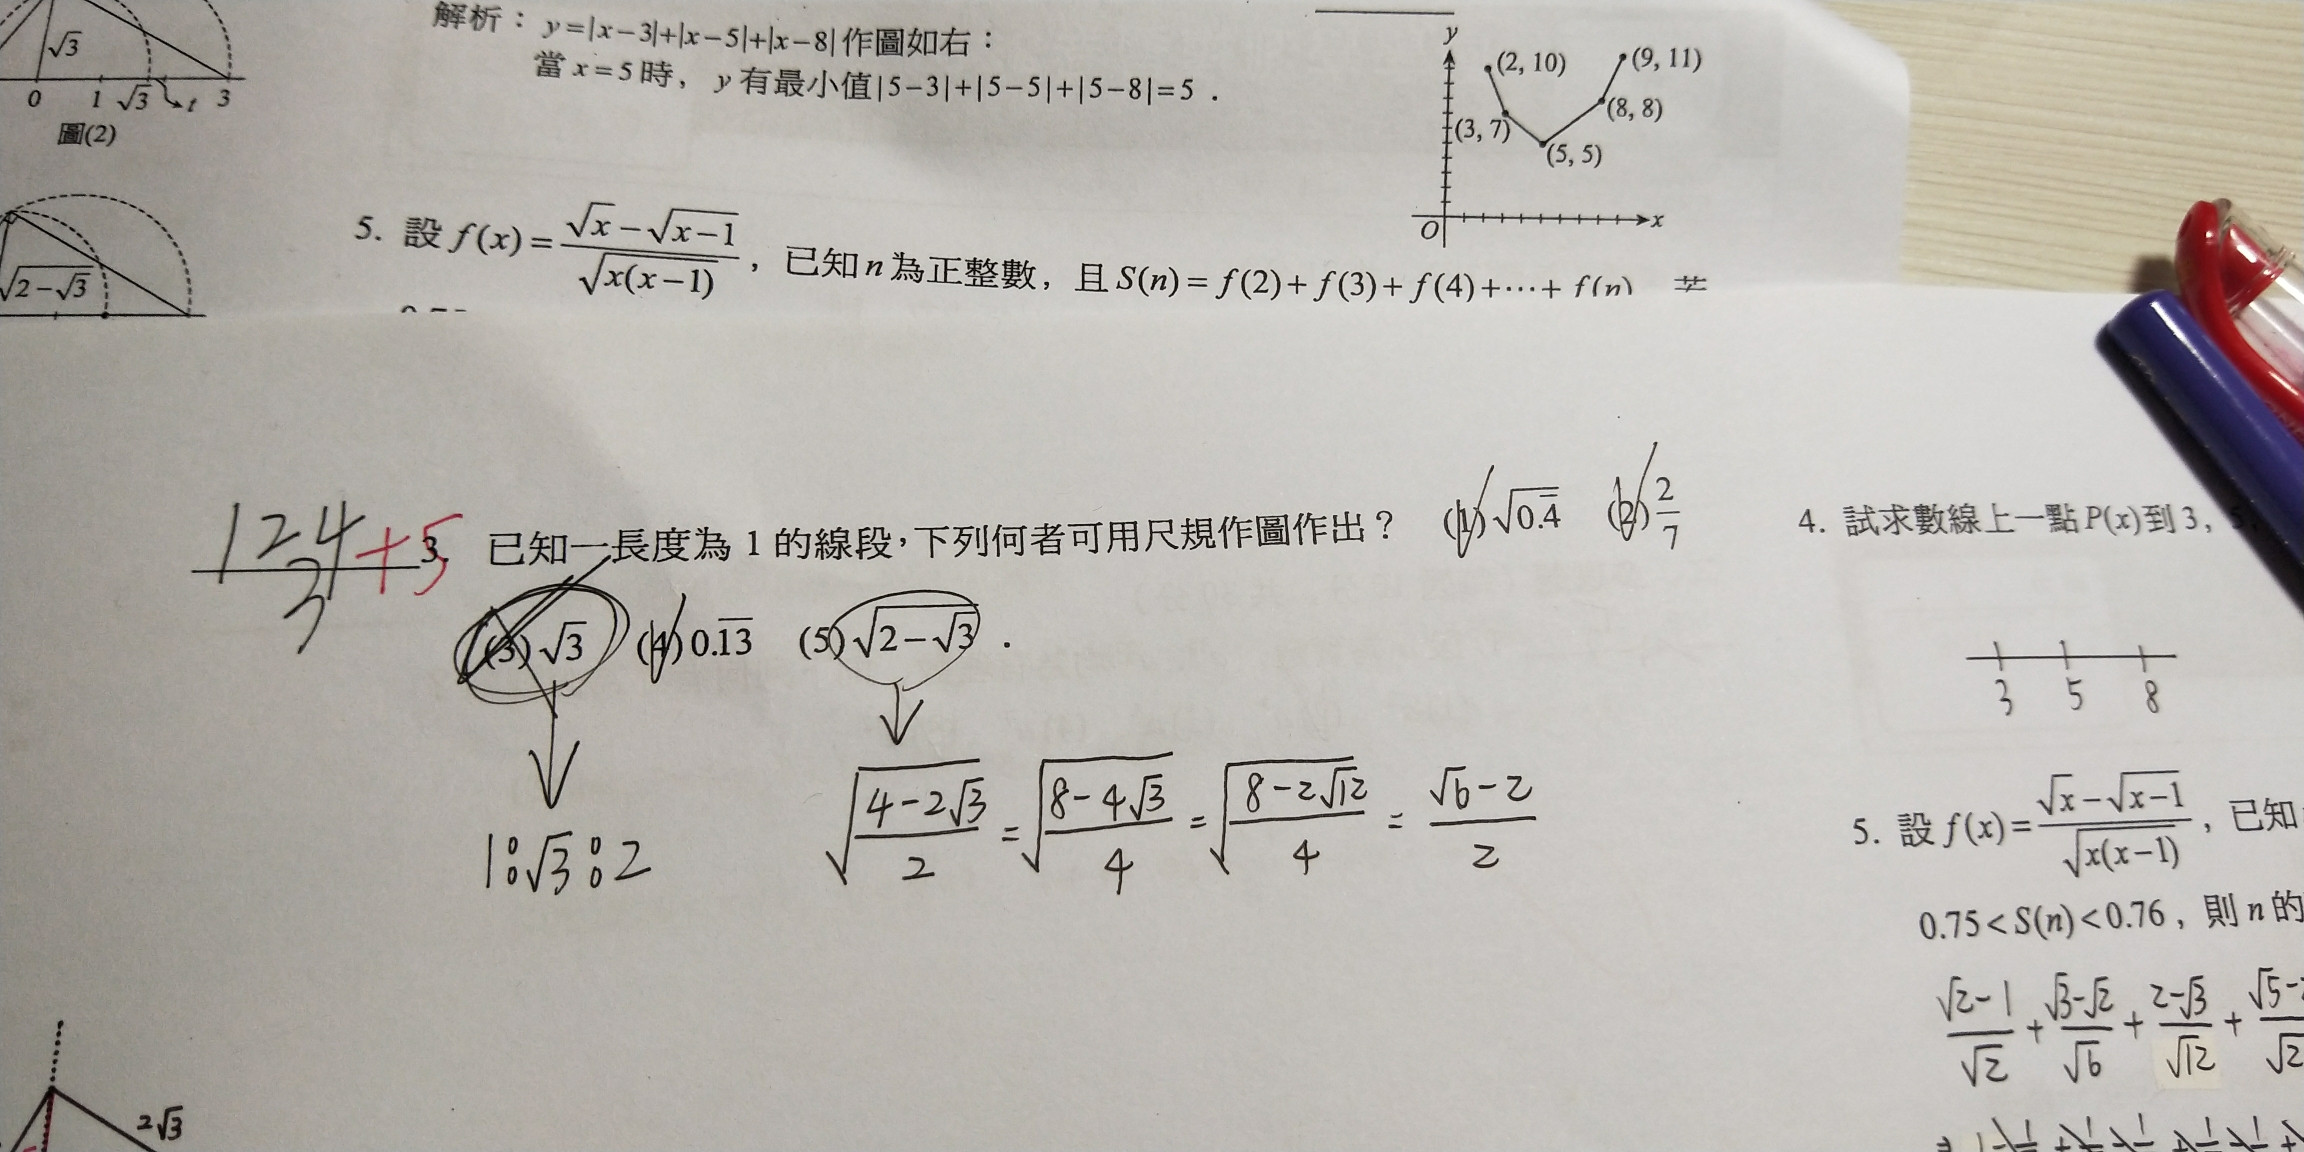 解析：y=|x−3|+|x−5|+|x−8|作圖如右：
當x=5時，y有最小值|5−3|+|5−5|+|5−8|=5．
y
(2, 10)
(9, 11)
(3, 7)
(8, 8)
(5, 5)
O
x
√3
0 1 √3 t 3
圖(2)
√(2−√3)
5. 設f(x)=(√x−√(x−1))/√(x(x−1))，已知n為正整數，且S(n)=f(2)+f(3)+f(4)+⋯+f(n)
1 2 4 +5
3
3. 已知一長度為 1 的線段，下列何者可用尺規作圖作出？ (1)√(0.4̅) (2)2/7
(3)√3 (4)0.1̅3̅ (5)√(2−√3)．
1:√3:2
√((4−2√3)/2) = √((8−4√3)/4) = √((8−2√12)/4) = (√6−2)/2
4. 試求數線上一點P(x)到3，5
3 5 8
5. 設f(x)=(√x−√(x−1))/√(x(x−1))，已知
0.75<S(n)<0.76，則n的
(√2−1)/√2 + (√3−√2)/√6 + (2−√3)/√12 +
2√3